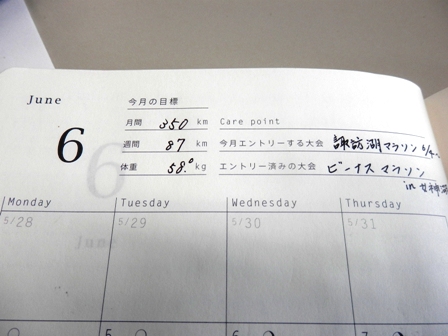 June
6
今月の目標
月間 350 km Care point
週間 87 km 今月エントリーする大会 諏訪湖マラソン
体重 58.0 kg エントリー済みの大会 ビーナスマラソン
in 女神
Monday Tuesday Wednesday Thursday
5/28 5/29 5/30 5/31